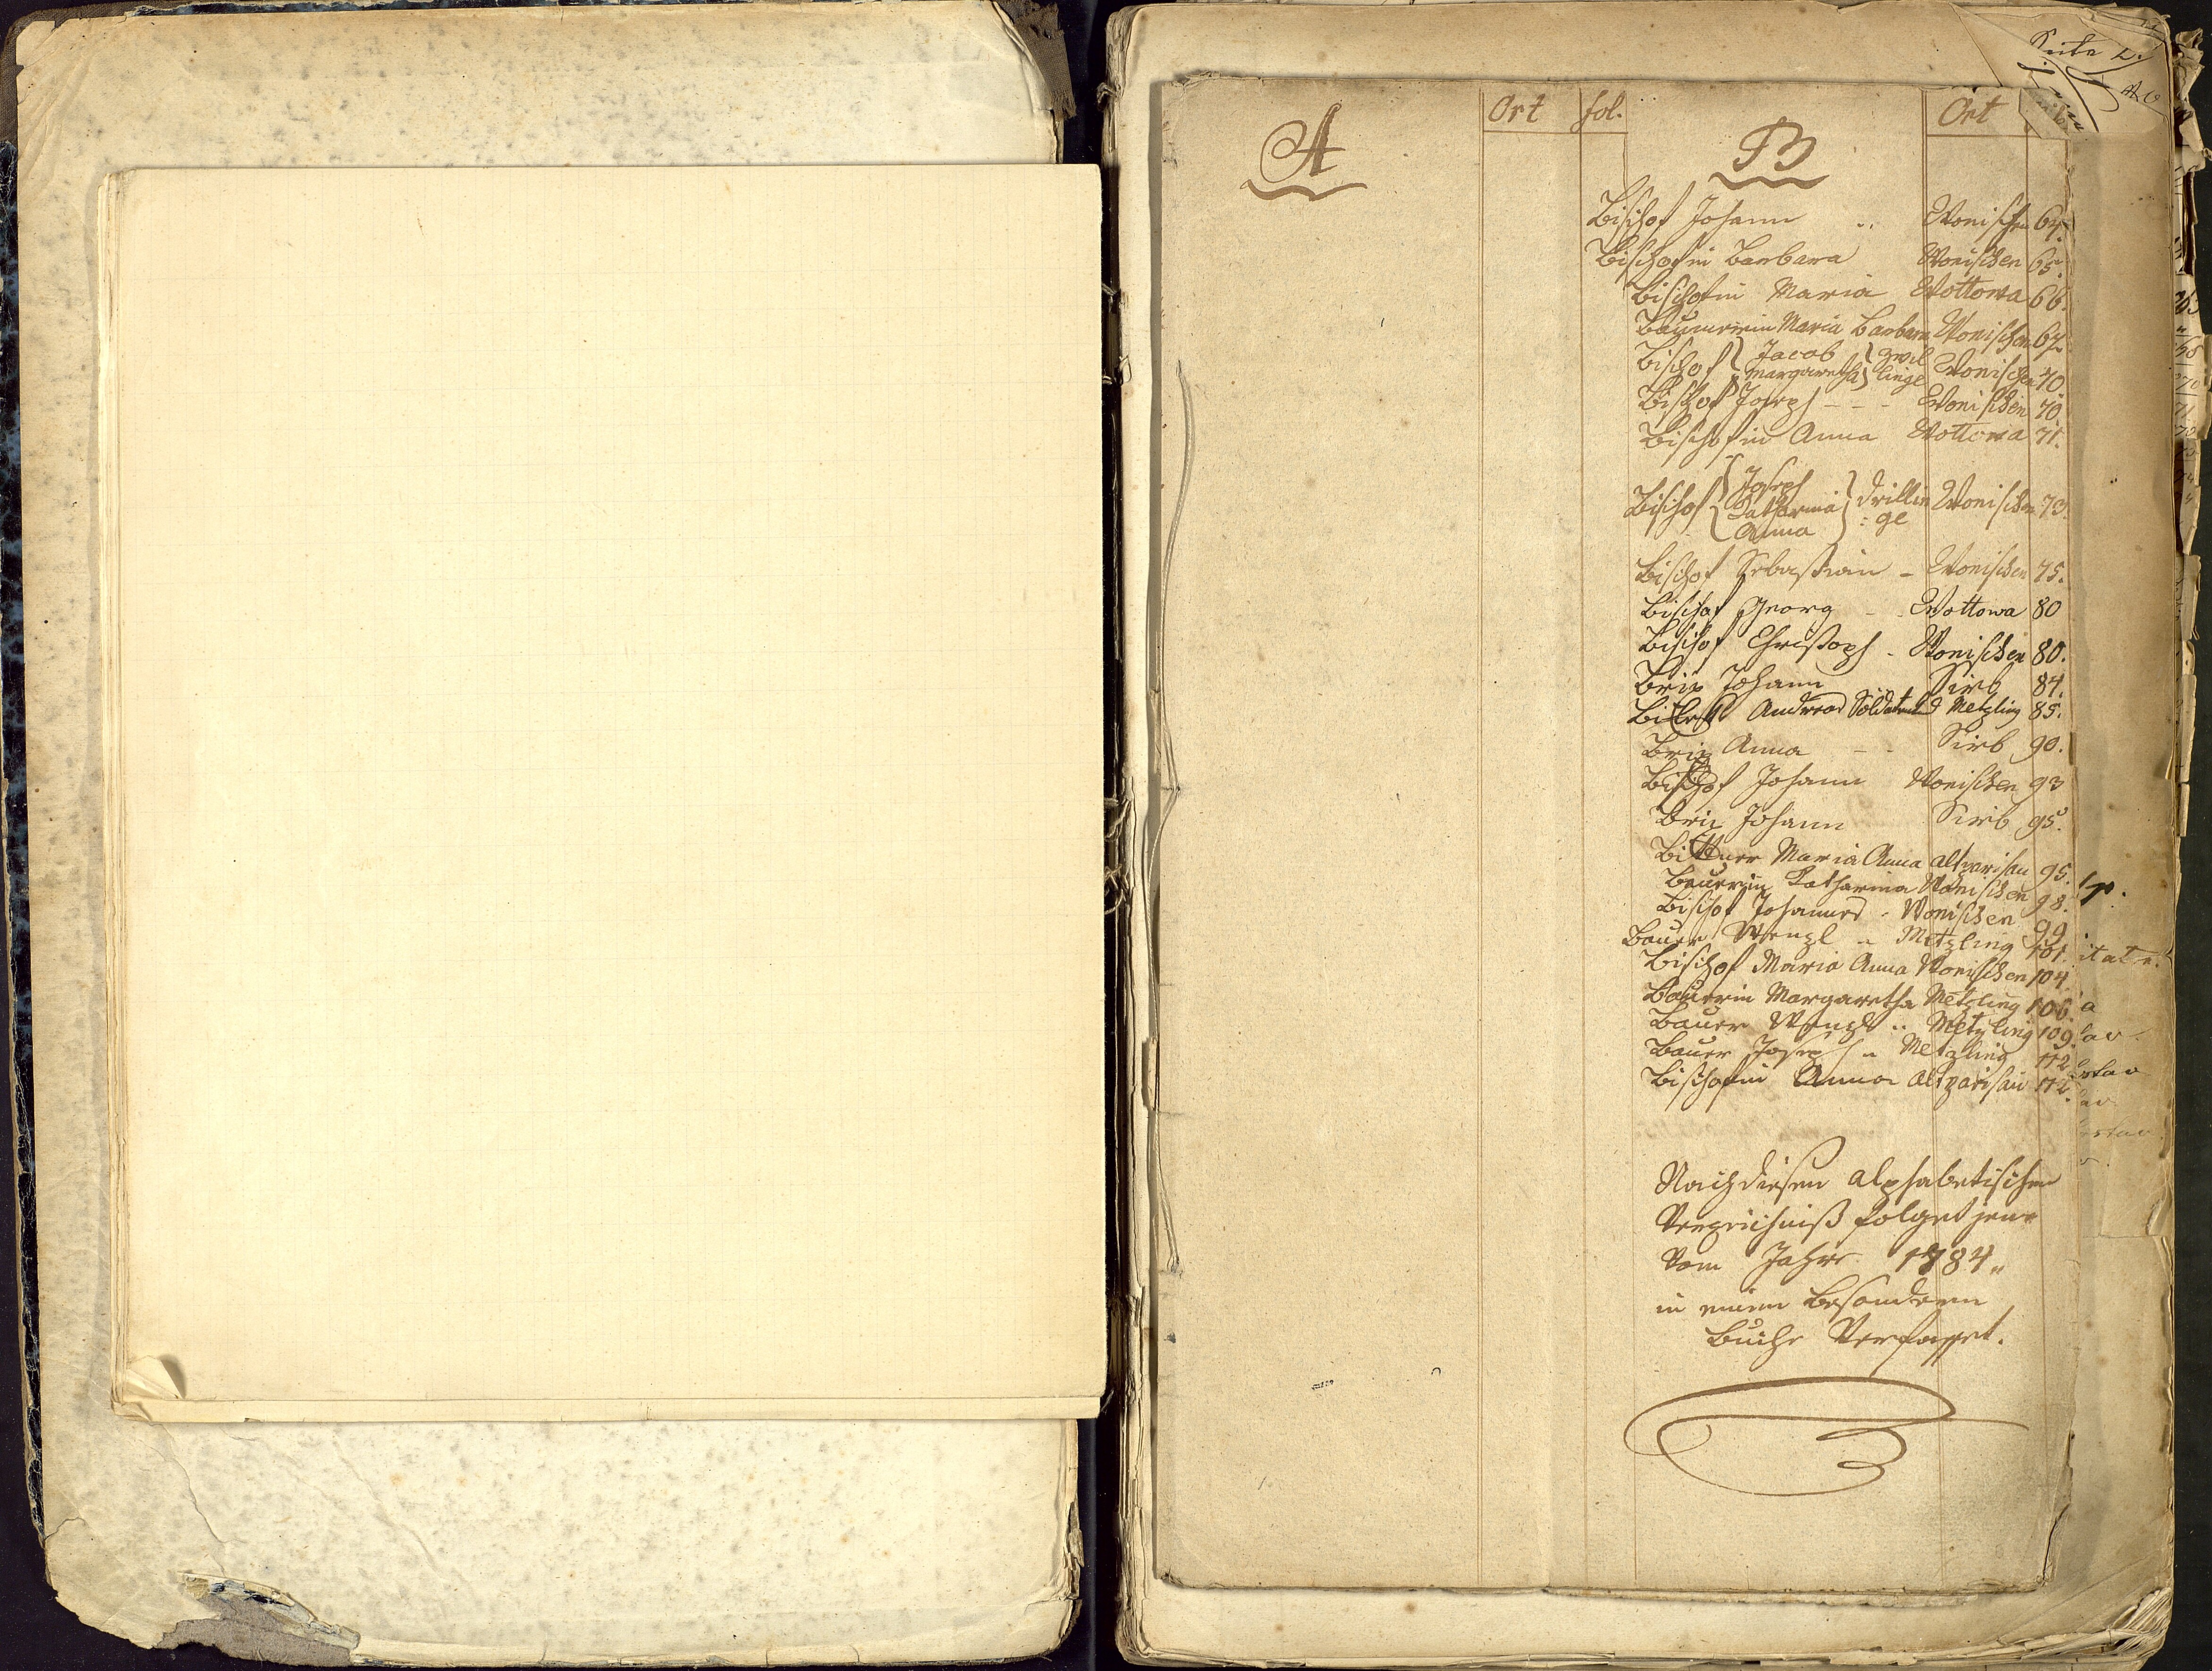 Seite
A
Ort
fol.
B
Ort
Bischof Johann .. Wonischen 64.
Bischofin Barbara Wonischen 65.
Bischofin Maria Wottowa 66.
Maria Barbara Wonischen 67
Bischof { Jacob Margaretha } Zwil linge Wonischen 70.
Bischof Joseph - - - Wonischen 70.
Bischofin Anna Wottowa 71.
Bischof { Joseph Katharina Anna } Drillin :ge Wonischen 73.
Bischof Sebastian - Wonischen 75.
Bischof Georg - . Wottowa 80
Bischof Christoph - Wonischen 80.
Brix Johann Sirb 84.
Andreas Metzling 85.
Brix Anna - - Sirb 90.
Bischof Johann Wonischen 93
Brix Johann Sirb 95.
Bittner Maria Anna Altparisau 95.
Bauerin Katharina Wonischen 98.
Bischof Johannes - Wonischen 99
Bauer Wenzl .. Metzling 101.
Bischof Maria Anna Wonischen 104
Bauerin Margaretha Metzling 106.
Bauer Wenzl .. Metzling 109.
Bauer Joseph .. Metzling 112
Bischofin Anna Altparisau 112.
Nach diesen alphabetischen
Verzeichniß folget jenes
Vom Jahre 1784"
in einem besondern
Buche Verfasset.